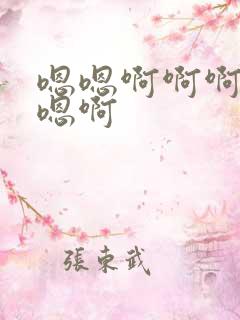 嗯嗯啊啊啊
嗯啊
張東武